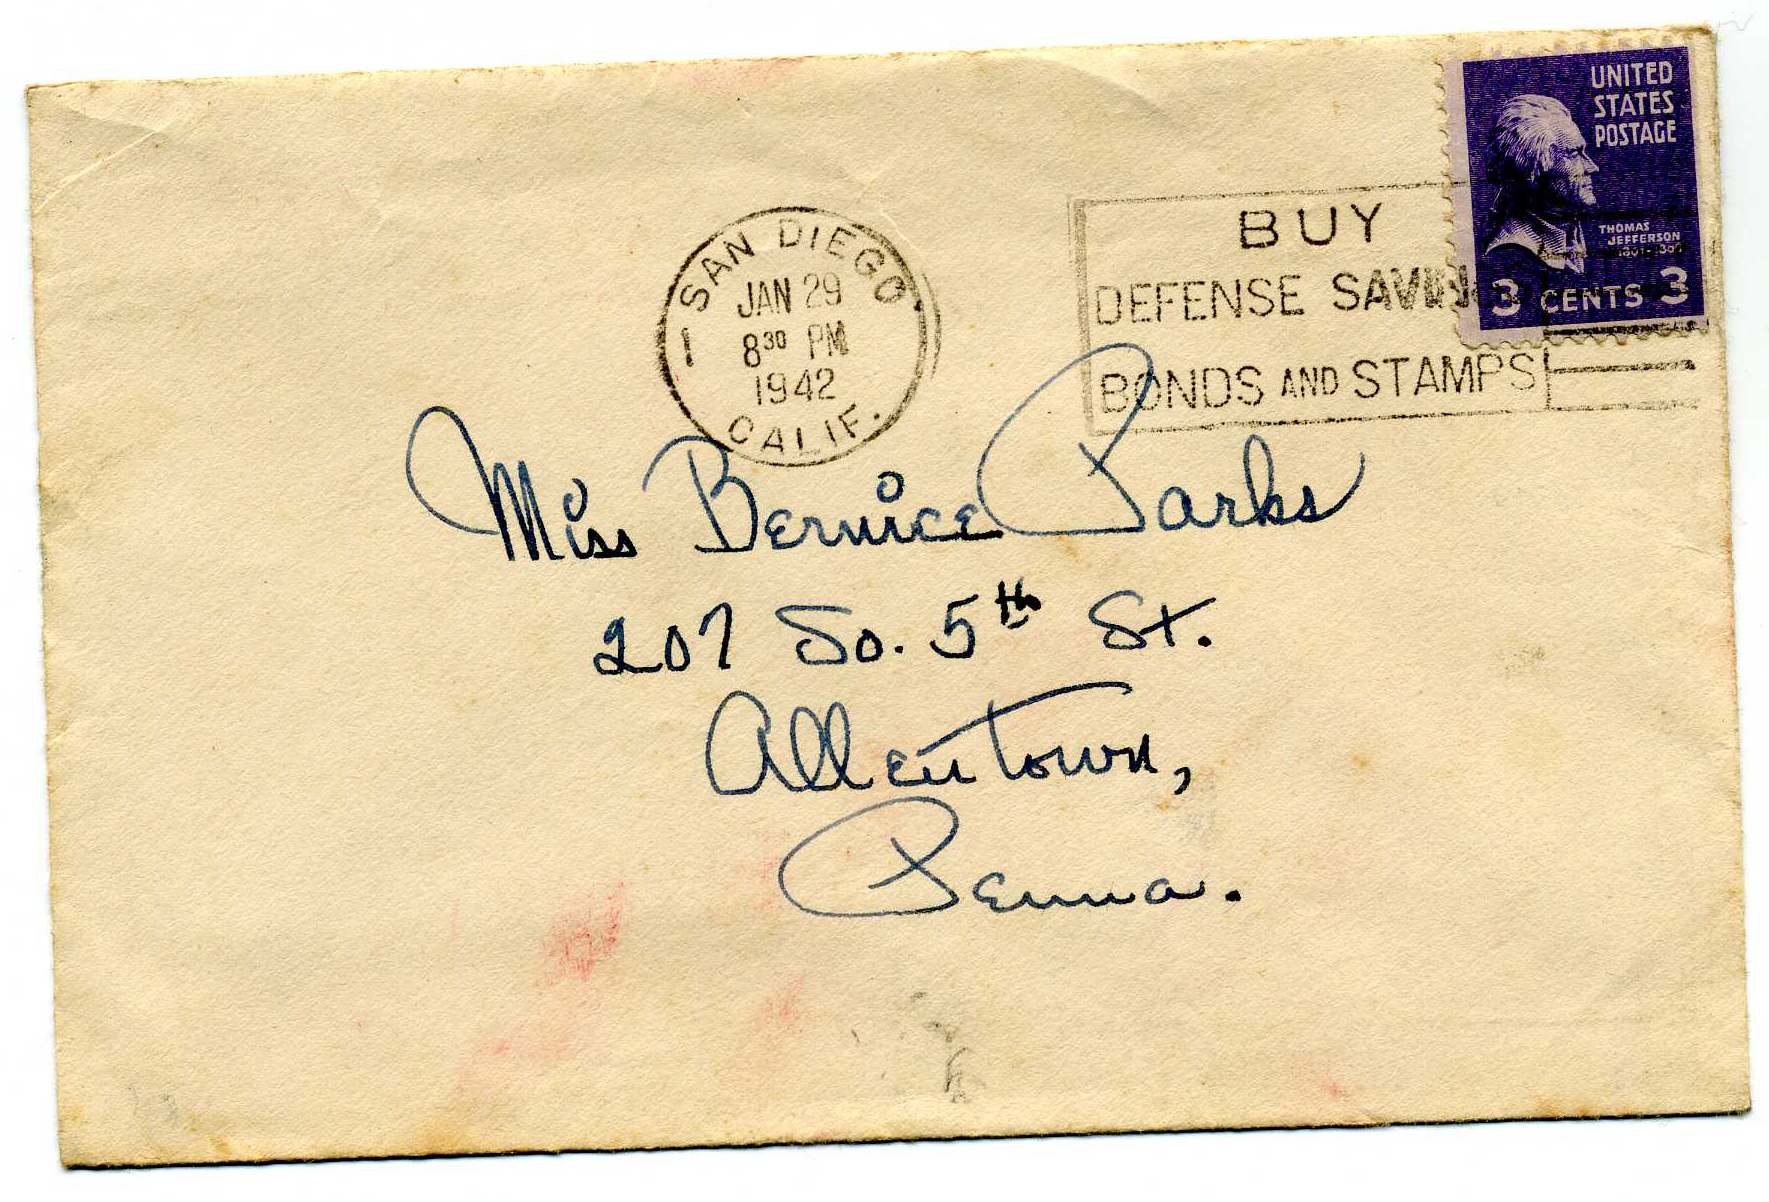 UNITED
STATES
POSTAGE
THOMAS
JEFFERSON
3 CENTS 3
SAN DIEGO
1
JAN 29
8 30 PM
1942
CALIF.
BUY
DEFENSE SAVINGS
BONDS AND STAMPS
Miss Bernice Parks
207 So. 5th St.
Allentown,
Penna.